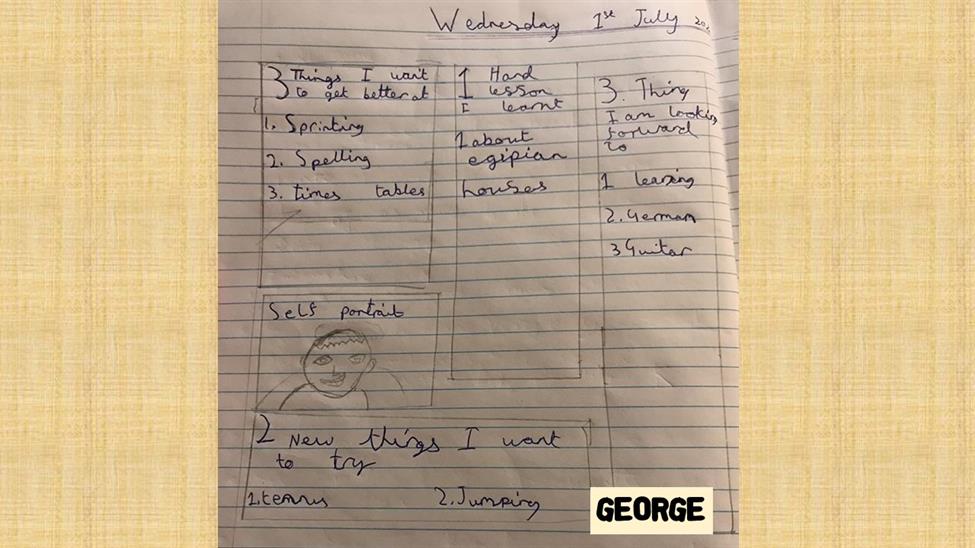 Wednesday 1st July
3 Things I want
to get better at
1. Sprinting
2. Spelling
3. times tables
1 Hard
lesson
I learnt
1 about
egipian
houses
3. Thing
I am looking
forward
to
1 learning
2. German
3 Guitar
Self portrait
2 New things I want
to try
1. tennis
2. Jumping
GEORGE